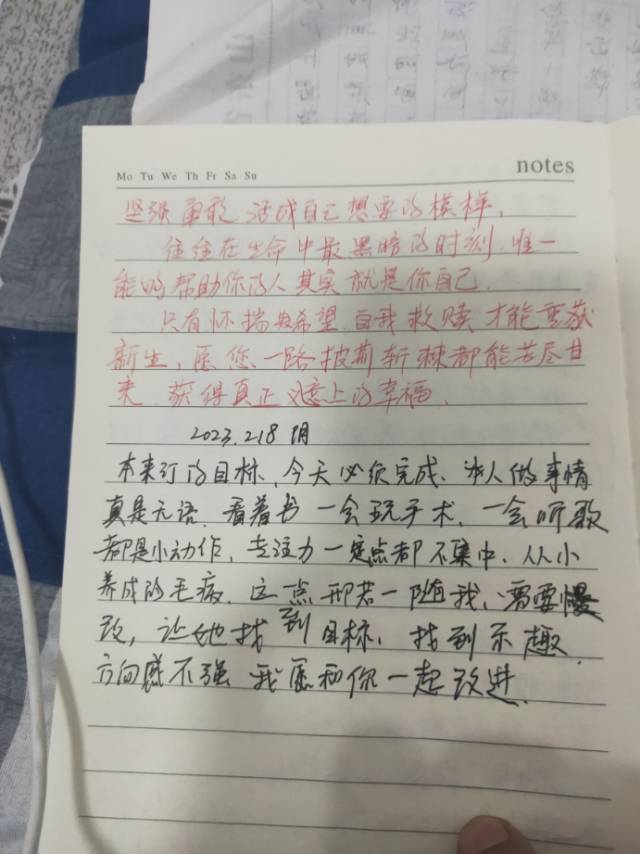 notes
Mo Tu We Th Fr Sa Su
坚强勇敢 活成自己想要的模样,
往往在生命中最黑暗的时刻 唯一
能够帮助你的人 其实 就是你自己.
只有怀揣着希望 自我救赎 才能重获
新生, 愿您一路披荆斩棘都能苦尽甘
来. 获得真正义意上的幸福.
2023.2.18 阴
本来订的目标, 今天必须完成. 做事情
真是无语. 看着书 一会玩手术, 一会听歌
都是小动作, 专注力一定点都不集中. 从小
养成的毛病. 这一点 那若一随我, 需要慢
改, 让她找到目标, 找到乐趣.
方向感不强 我愿和你一起改进.